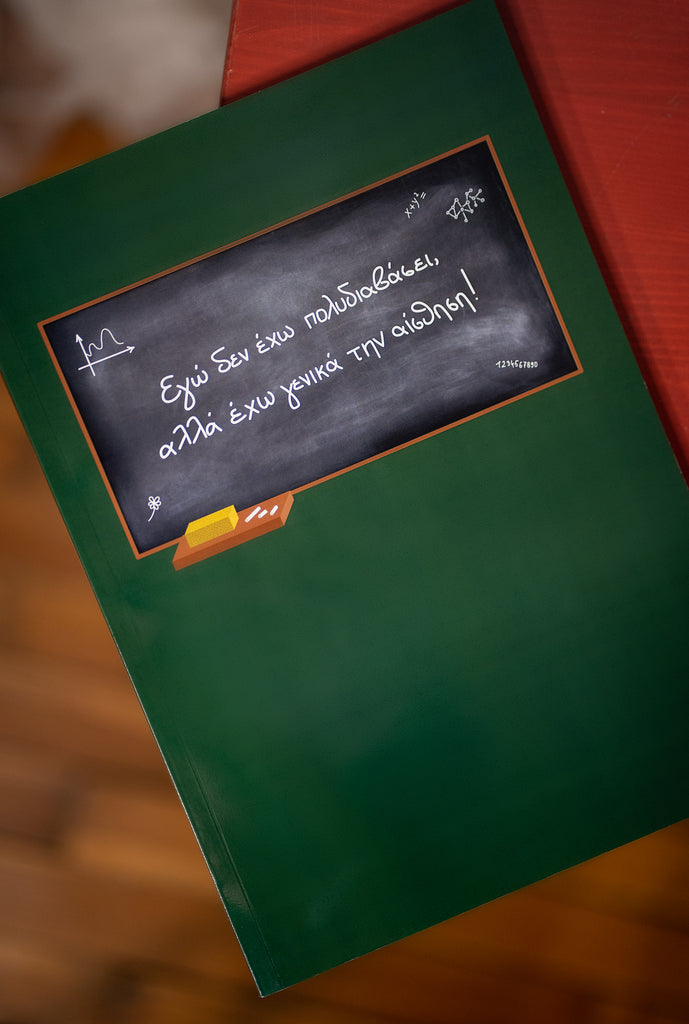 x+y²=
Εγώ δεν έχω πολυδιαβάσει,
αλλά έχω γενικά την αίσθηση!
1234567890